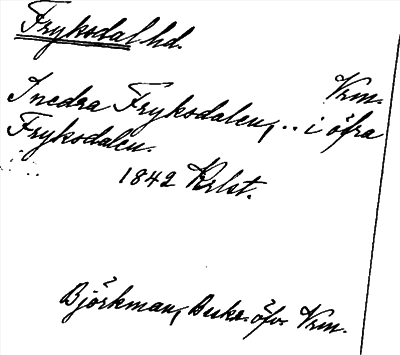 Fryksdal hd.
Vrm.
I nedra Fryksdalen, .. i öfra
Fryksdalen.
1842 Krlst.
Björkman, Beskr. öfv. Vrm.